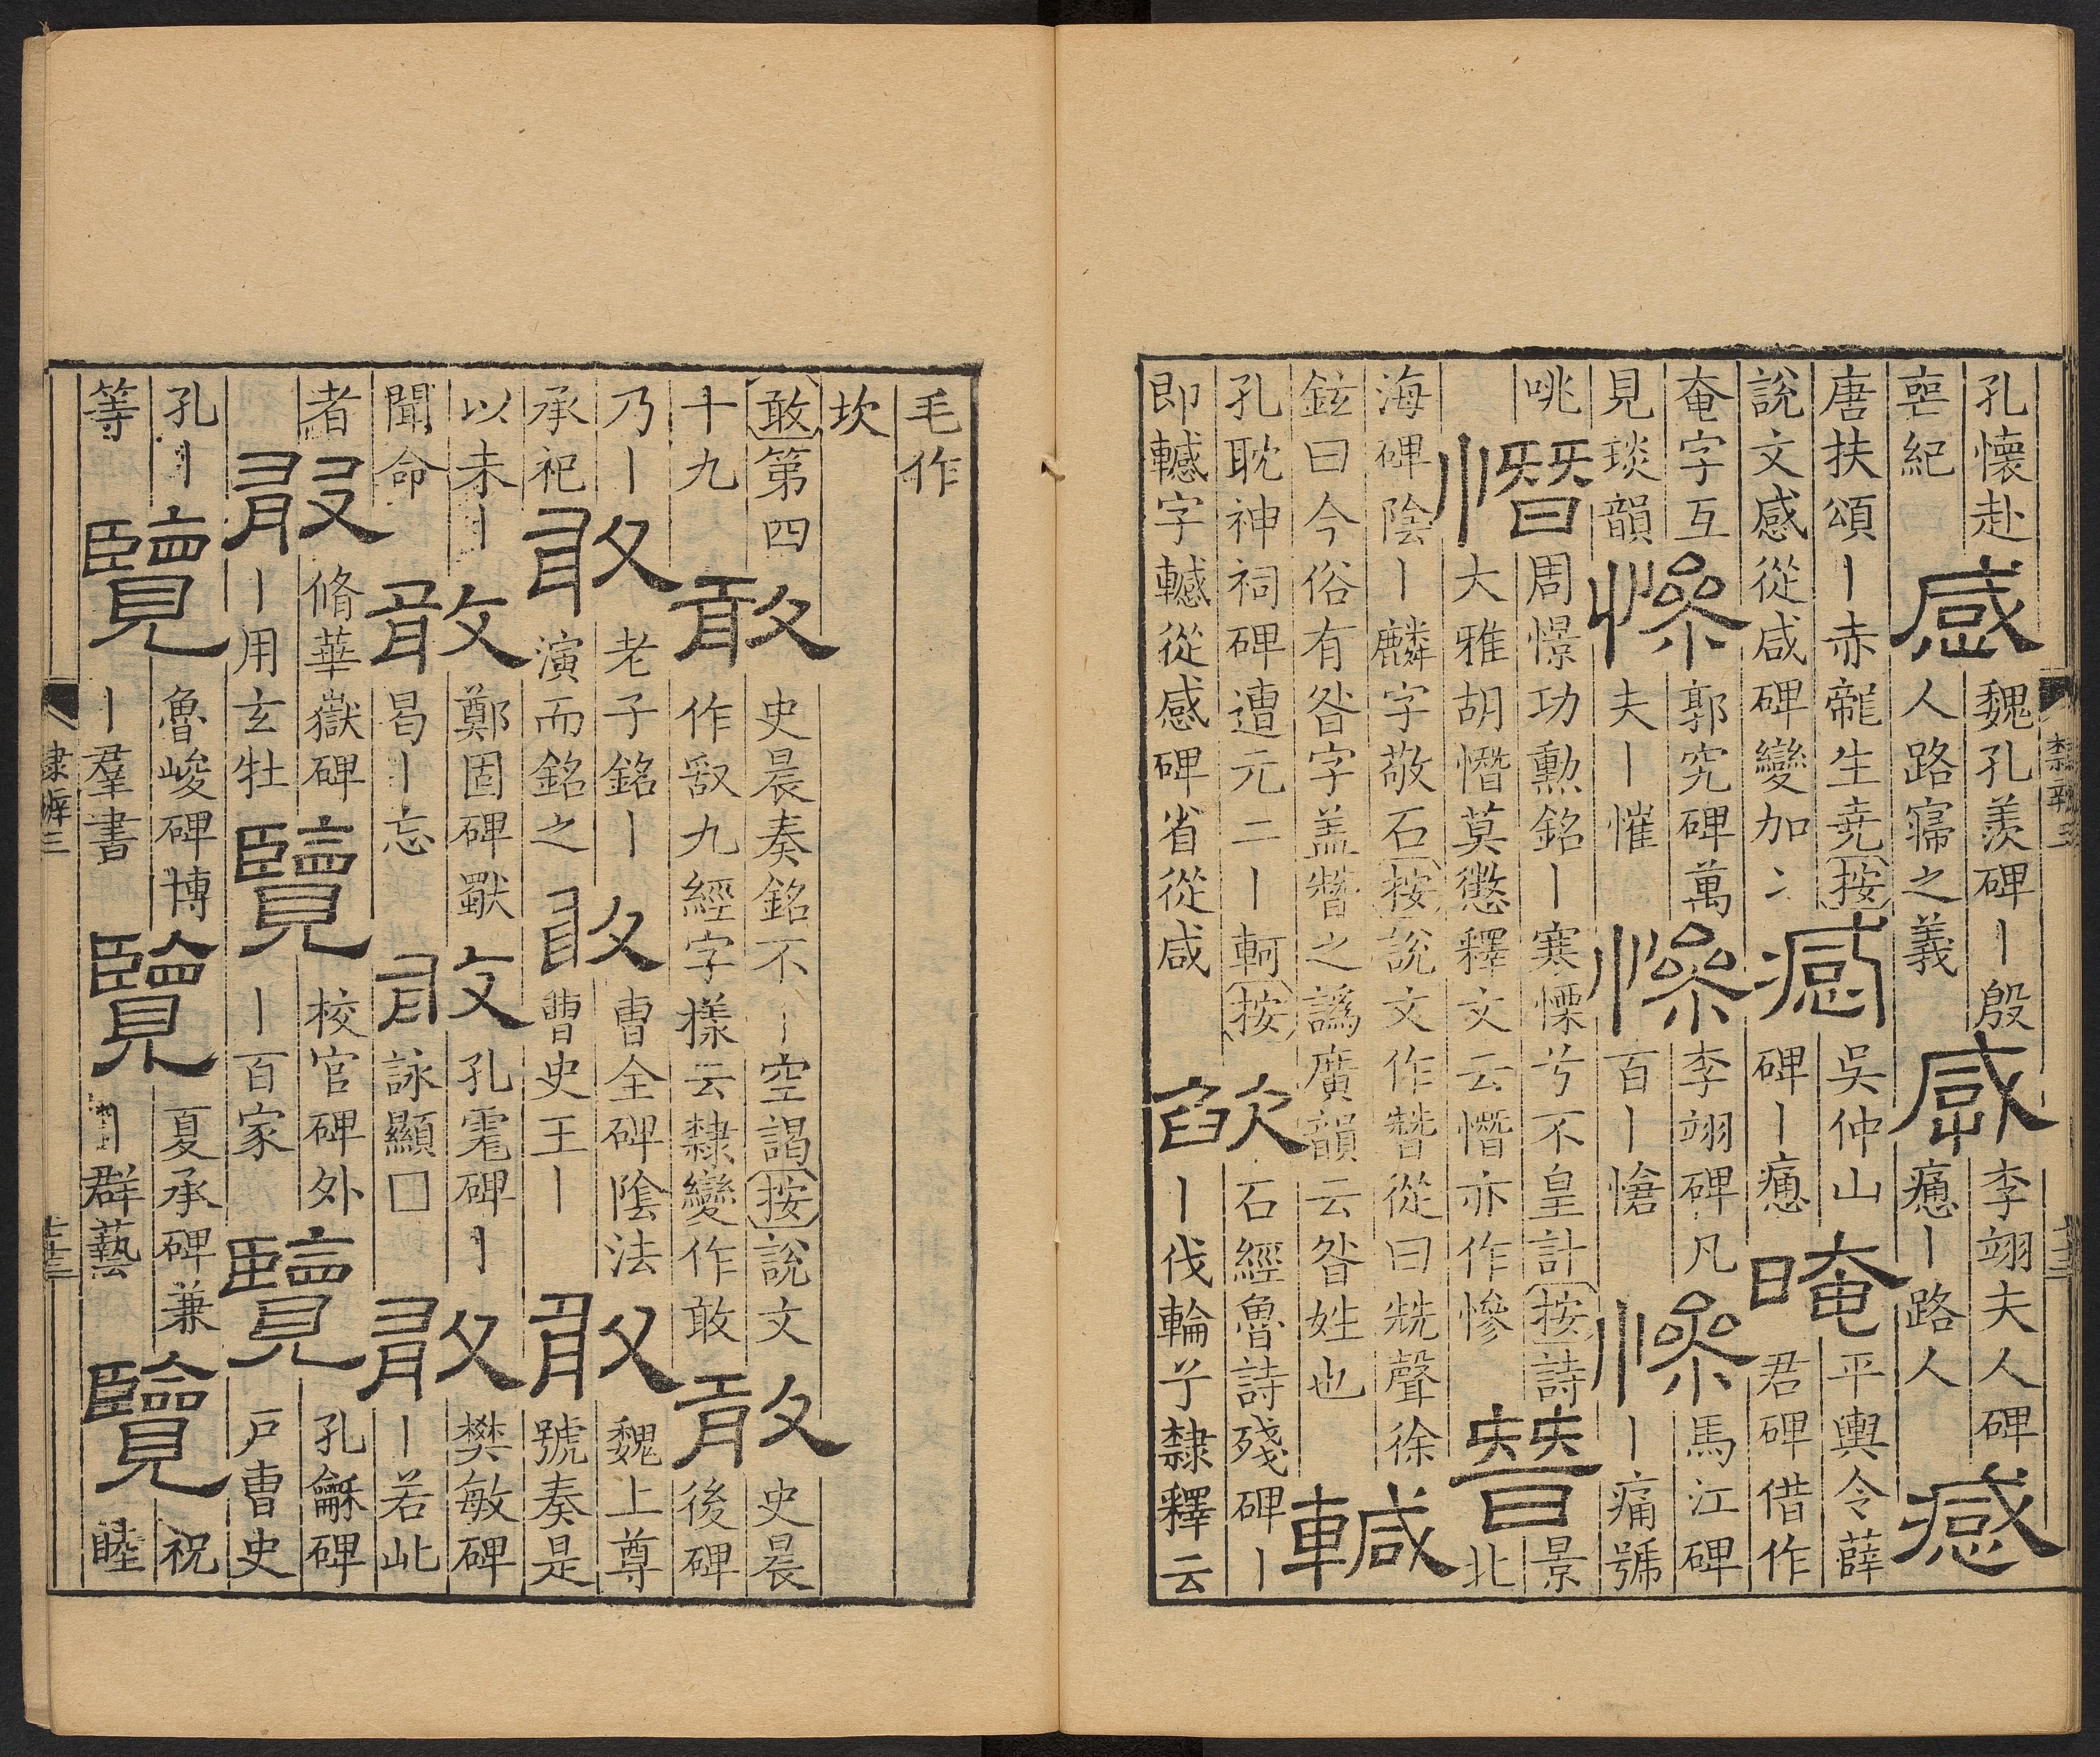 孔懷赴
喪紀
感
魏孔羨碑丨殷
人路寢之義
感
李翊夫人碑
癒丨路人
感
唐扶頌丨赤龗生堯按
說文感從咸碑變加冫
感
吳仲山
碑丨癒
晻
平輿令薛
君碑借作
奄字互
見琰韻
慘
郭究碑萬
夫丨慛
慘
李翊碑凡
百丨愴
慘
馬江碑
丨痛號
咷
憯
周憬功勲銘丨寒慄兮不皇計按詩
大雅胡憯莫懲釋文云憯亦作慘
朁
景
北
海碑陰丨麟字敬石按說文作朁從曰兓聲徐
鉉曰今俗有昝字盖朁之譌廣韻云昝姓也
轗
孔耽神祠碑遭元二丨軻按
即轗字轗從感碑省從咸
欿
石經魯詩殘碑丨
丨伐輪兮隸釋云
隸辨三
毛作
坎
敢第四
十九
敢
史晨奏銘不丨空謁按說文
作㪉九經字樣云隸變作敢
敢
史晨
後碑
乃丨
承祀
敢
老子銘丨
演而銘之
敢
曹全碑陰法
曹史王丨
敢
魏上尊
號奏是
以未丨
聞命
敢
鄭固碑獸
曷丨忘
敢
孔宙碑丨
詠顯□
敢
樊敏碑
丨若此
者
敢
脩華嶽碑
丨用玄牡
覽
校官碑外
丨百家
覽
孔龢碑
戶曹史
孔丨
等
覽
魯峻碑博
丨羣書
覽
夏承碑兼
丨群藝
覽
祝
睦
隸辨三